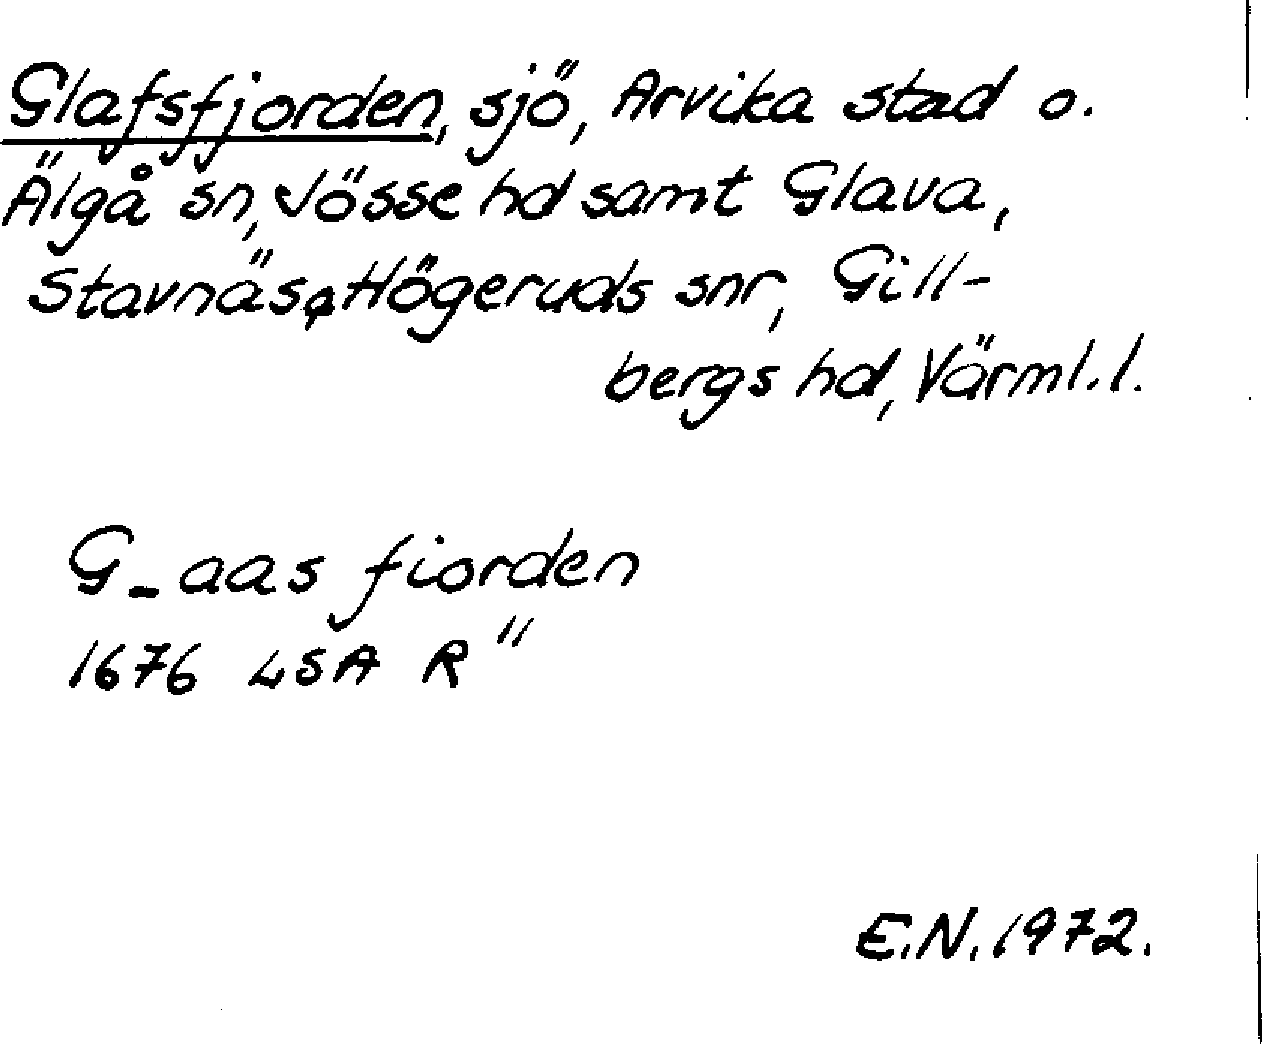 Glafsfjorden, sjö, Arvika stad o.
Älgå sn, Jösse hd samt Glava,
Stavnäs o Högeruds snr, Gill-
bergs hd, Värml. l.
G_aas fiorden
1676 LSA R"
E.N. 1972.